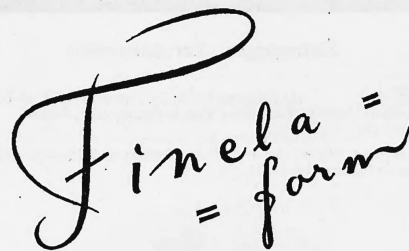 Finela =
= form